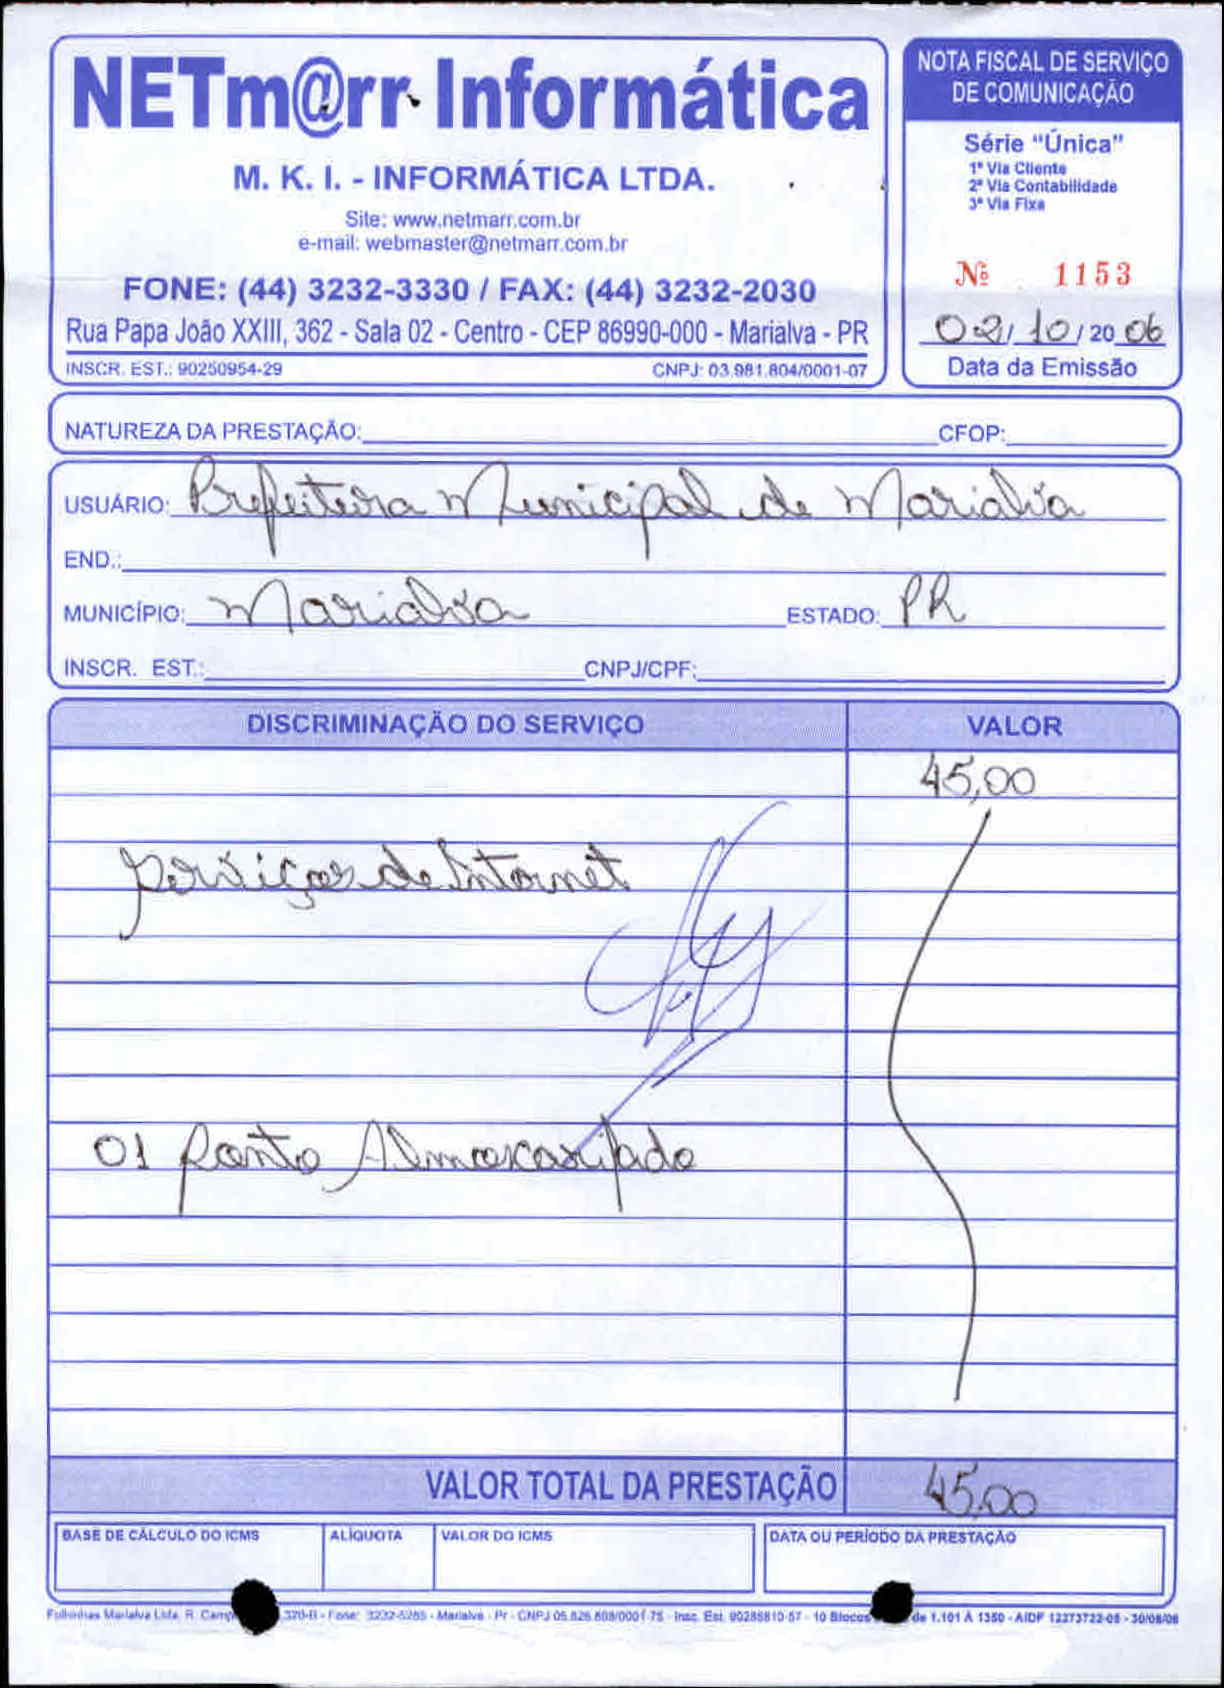 NETm@rr Informática
M. K. I. - INFORMÁTICA LTDA.
Site: www.netmarr.com.br
e-mail: webmaster@netmarr.com.br
FONE: (44) 3232-3330 / FAX: (44) 3232-2030
Rua Papa João XXIII, 362 - Sala 02 - Centro - CEP 86990-000 - Marialva - PR
INSCR. EST.: 90250954-29 CNPJ: 03.981.804/0001-07
NOTA FISCAL DE SERVIÇO
DE COMUNICAÇÃO
Série "Única"
1ª Via Cliente
2ª Via Contabilidade
3ª Via Fixa
Nº 1153
02/10/2006
Data da Emissão
NATUREZA DA PRESTAÇÃO: CFOP:
USUÁRIO: Prefeitura Municipal de Marialva
END.:
MUNICÍPIO: Marialva ESTADO: PR
INSCR. EST.: CNPJ/CPF:
DISCRIMINAÇÃO DO SERVIÇO VALOR
45,00
Serviços de Internet
01 Ponto Almoxarifado
VALOR TOTAL DA PRESTAÇÃO 45,00
BASE DE CÁLCULO DO ICMS ALÍQUOTA VALOR DO ICMS DATA OU PERÍODO DA PRESTAÇÃO
Marialva Ltda. R. 320-B - Fone: 3232-5285 - Marialva - Pr - CNPJ 05.826.808/0001-75 - Insc. Est. 90286810-57 - 10 Blocos de 1.101 À 1350 - AIDF 12273722-05 - 30/08/06